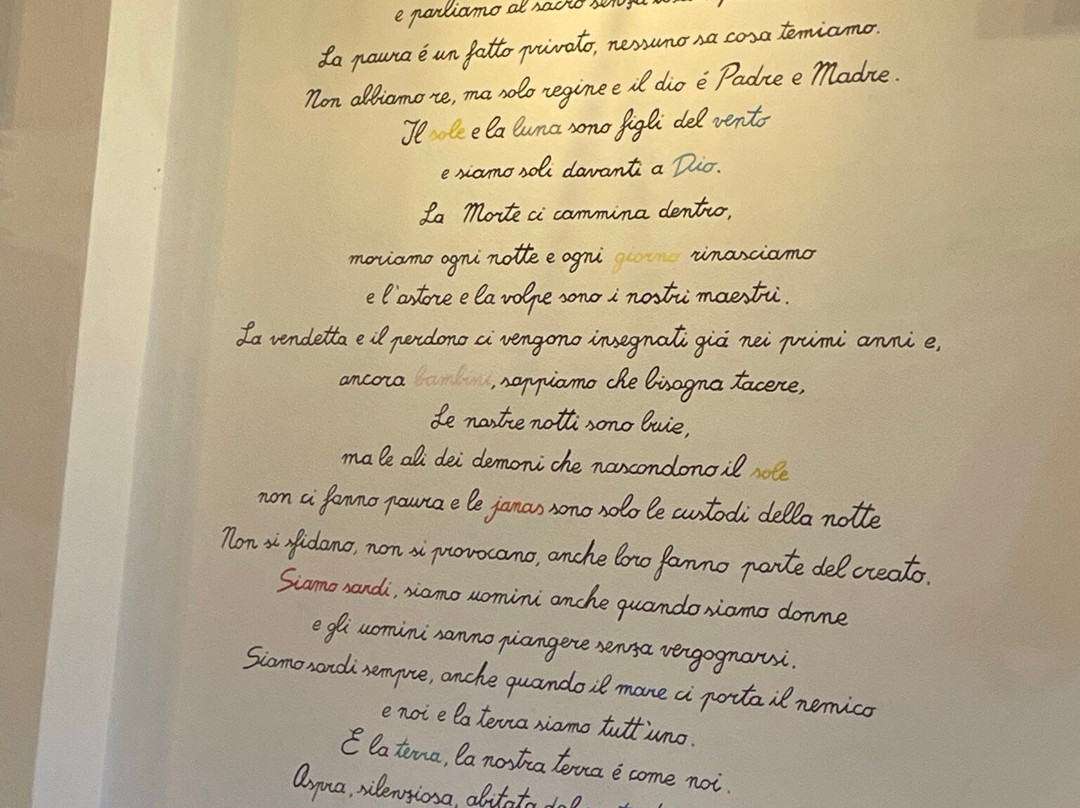 e parliamo al sacro senza
La paura é un fatto privato, nessuno sa cosa temiamo.
Non abbiamo re, ma solo regine e il dio é Padre e Madre.
Il sole e la luna sono figli del vento
e siamo soli davanti a Dio.
La Morte ci cammina dentro,
moriamo ogni notte e ogni giorno rinasciamo
e l'astore e la volpe sono i nostri maestri.
La vendetta e il perdono ci vengono insegnati giá nei primi anni e,
ancora bambini, sappiamo che bisogna tacere,
Le nostre notti sono buie,
ma le ali dei demoni che nascondono il sole
non ci fanno paura e le janas sono solo le custodi della notte
Non si sfidano, non si provocano, anche loro fanno parte del creato.
Siamo sardi, siamo uomini anche quando siamo donne
e gli uomini sanno piangere senza vergognarsi.
Siamo sardi sempre, anche quando il mare ci porta il nemico
e noi e la terra siamo tutt'uno.
E la terra, la nostra terra é come noi.
Aspra, silenziosa, abitata